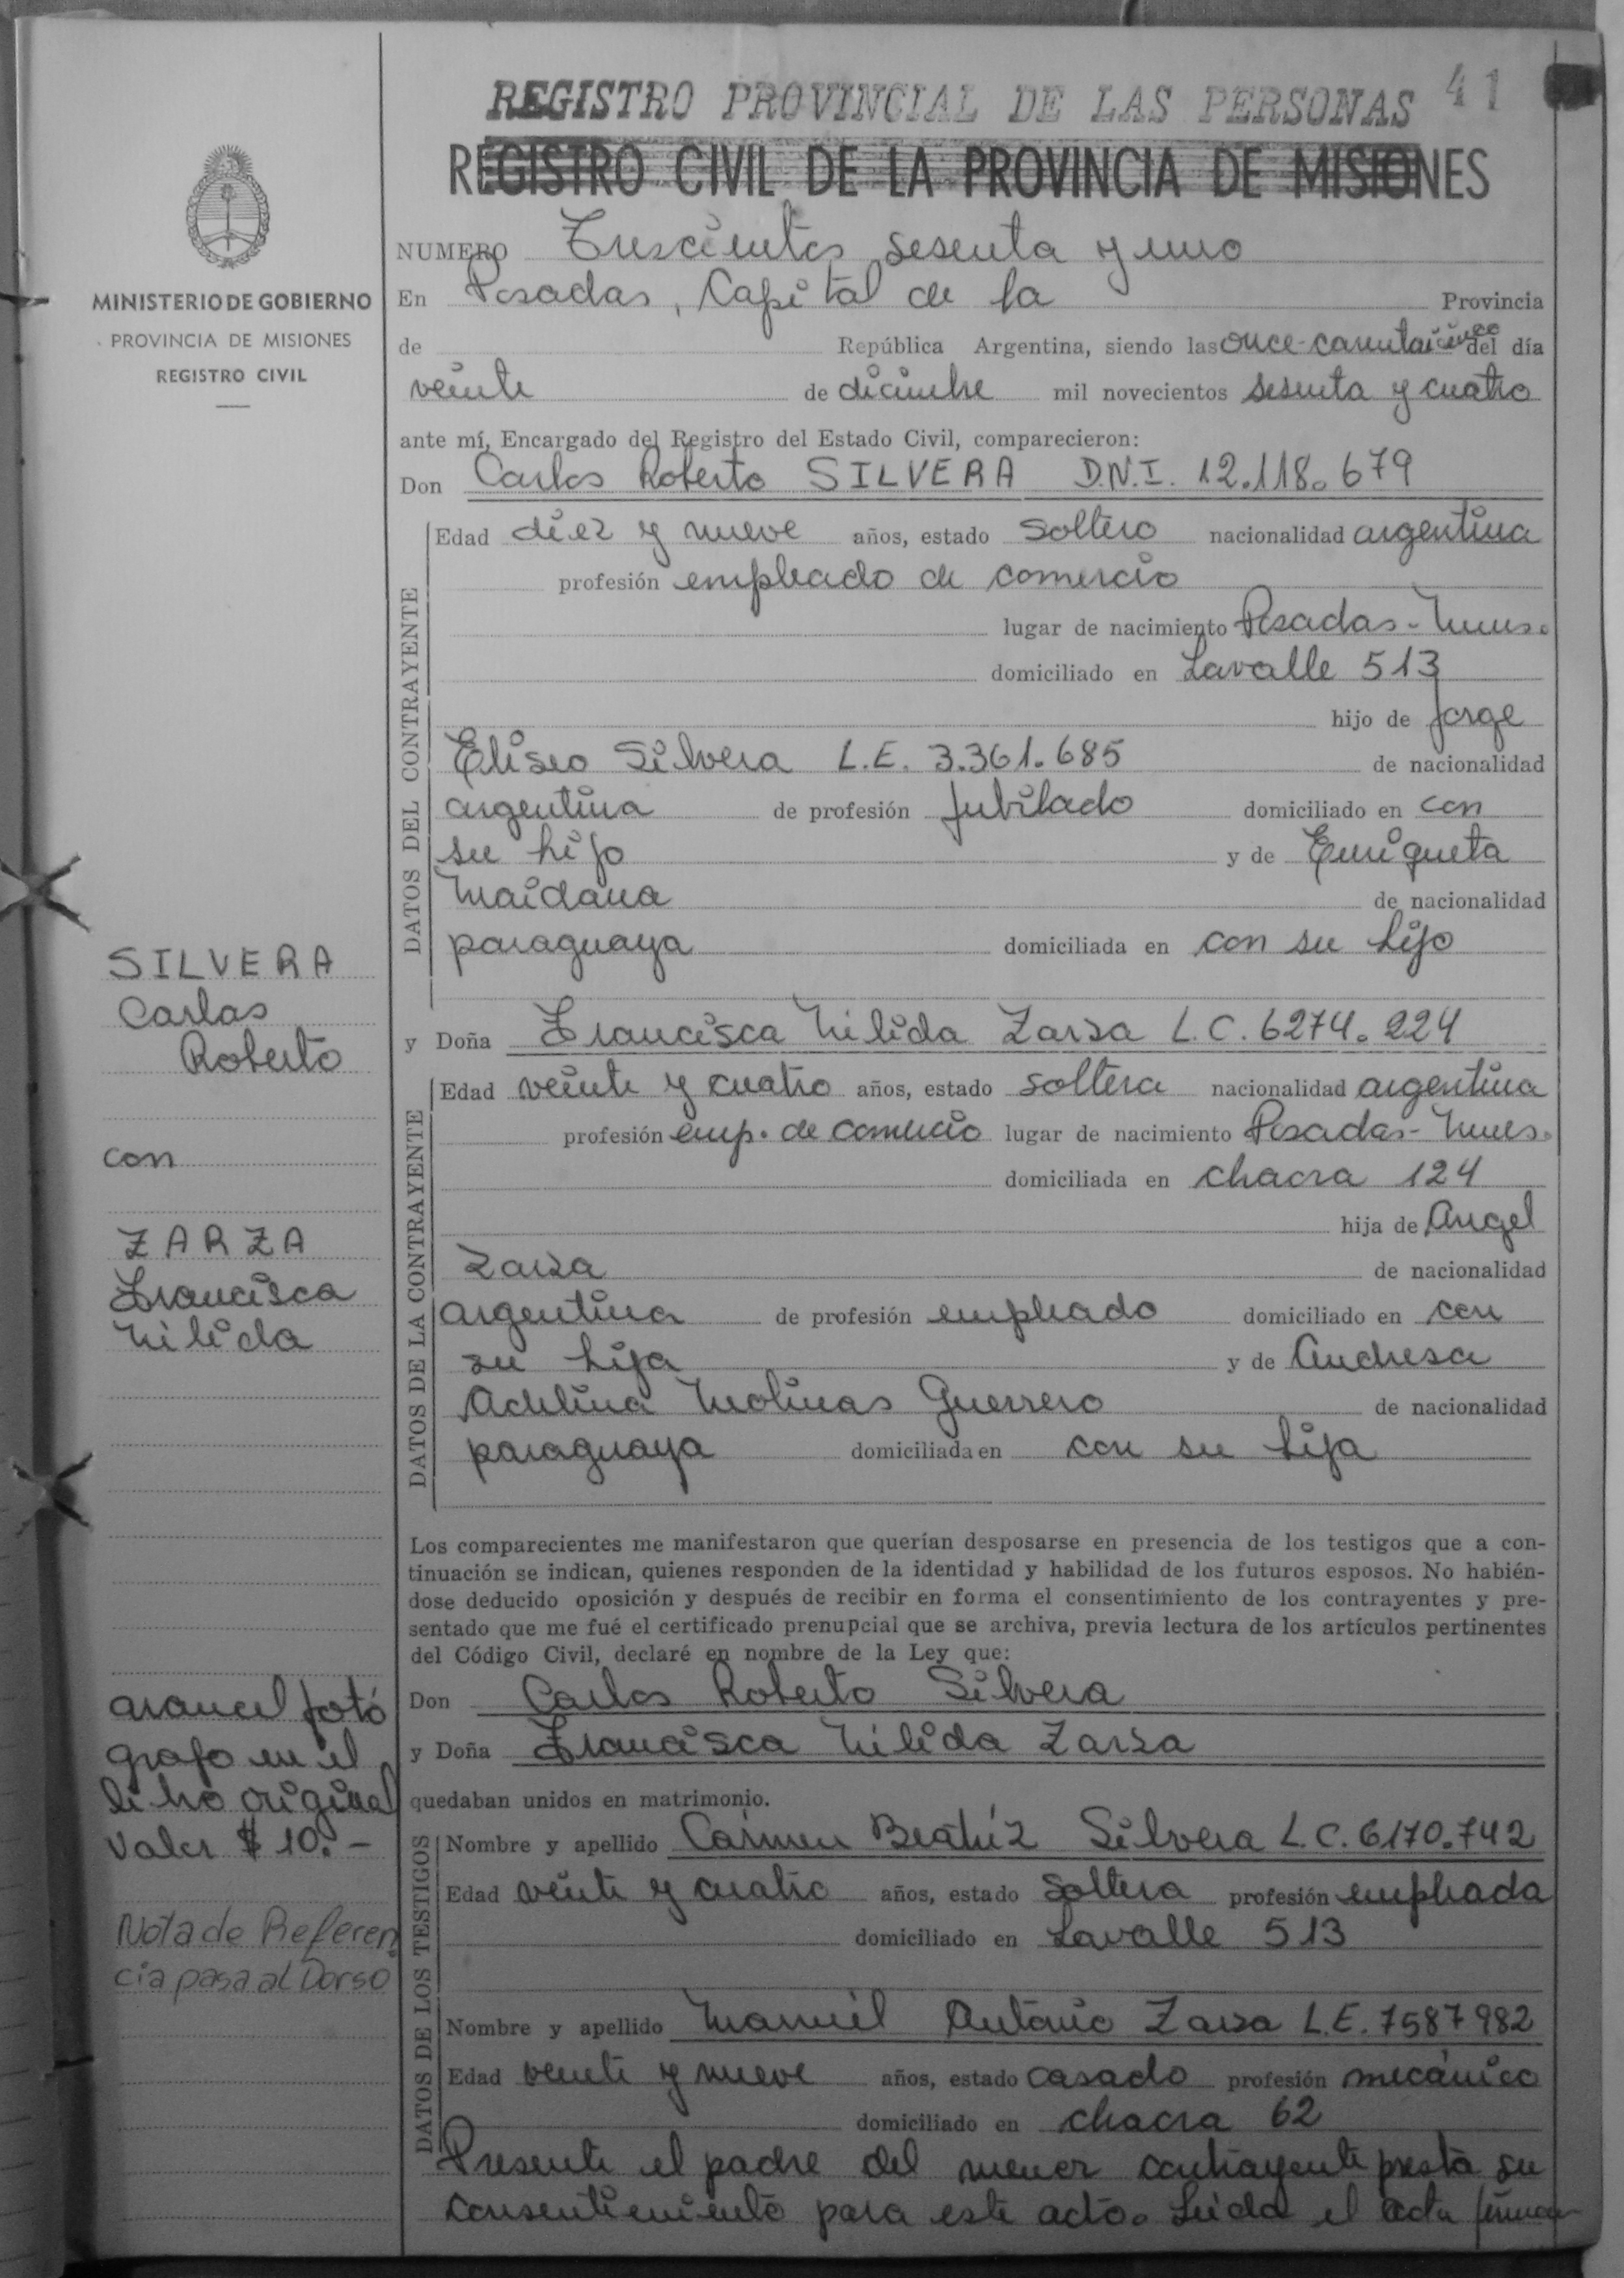 REGISTRO PROVINCIAL DE LAS PERSONAS 41
REGISTRO CIVIL DE LA PROVINCIA DE MISIONES
MINISTERIO DE GOBIERNO
PROVINCIA DE MISIONES
REGISTRO CIVIL
NUMERO Trescientos sesenta y uno
En Posadas, Capital de la Provincia
de República Argentina, siendo las once cuarentaicinco del día
veinte de diciembre mil novecientos sesenta y cuatro
ante mí, Encargado del Registro del Estado Civil, comparecieron:
Don Carlos Roberto SILVERA D.N.I. 12.118.679
DATOS DEL CONTRAYENTE
Edad diez y nueve años, estado soltero nacionalidad argentina
profesión empleado de comercio
lugar de nacimiento Posadas - Mnes.
domiciliado en Lavalle 513
hijo de Jorge
Eliseo Silvera L.E. 3.361.685 de nacionalidad
argentina de profesión jubilado domiciliado en con
su hijo y de Enriqueta
Maidana de nacionalidad
paraguaya domiciliada en con su hijo
SILVERA
Carlos
Roberto
con
ZARZA
Francisca
Nilida
y Doña Francisca Nilida Zarza L.C. 6274.224
DATOS DE LA CONTRAYENTE
Edad veinte y cuatro años, estado soltera nacionalidad argentina
profesión emp. de comercio lugar de nacimiento Posadas - Mnes.
domiciliada en chacra 124
hija de Angel
Zarza de nacionalidad
argentina de profesión empleado domiciliado en con
su hija y de Andresa
Adelina Molinas Guerrero de nacionalidad
paraguaya domiciliada en con su hija
Los comparecientes me manifestaron que querían desposarse en presencia de los testigos que a con-
tinuación se indican, quienes responden de la identidad y habilidad de los futuros esposos. No habién-
dose deducido oposición y después de recibir en forma el consentimiento de los contrayentes y pre-
sentado que me fué el certificado prenupcial que se archiva, previa lectura de los artículos pertinentes
del Código Civil, declaré en nombre de la Ley que:
Don Carlos Roberto Silvera
y Doña Francisca Nilida Zarza
quedaban unidos en matrimonio.
arancel fotó
grafo en el
libro original
Valor $ 10.-
Nota de Referen
cia pasa al Dorso
DATOS DE LOS TESTIGOS
Nombre y apellido Carmen Beatriz Silvera L.C. 6170.742
Edad veinte y cuatro años, estado soltera profesión empleada
domiciliado en Lavalle 513
Nombre y apellido Manuel Antonio Zarza L.E. 7587982
Edad veinte y nueve años, estado casado profesión mecánico
domiciliado en chacra 62
Presente el padre del menor contrayente presta su
consentimiento para este acto. Leída el acta firman